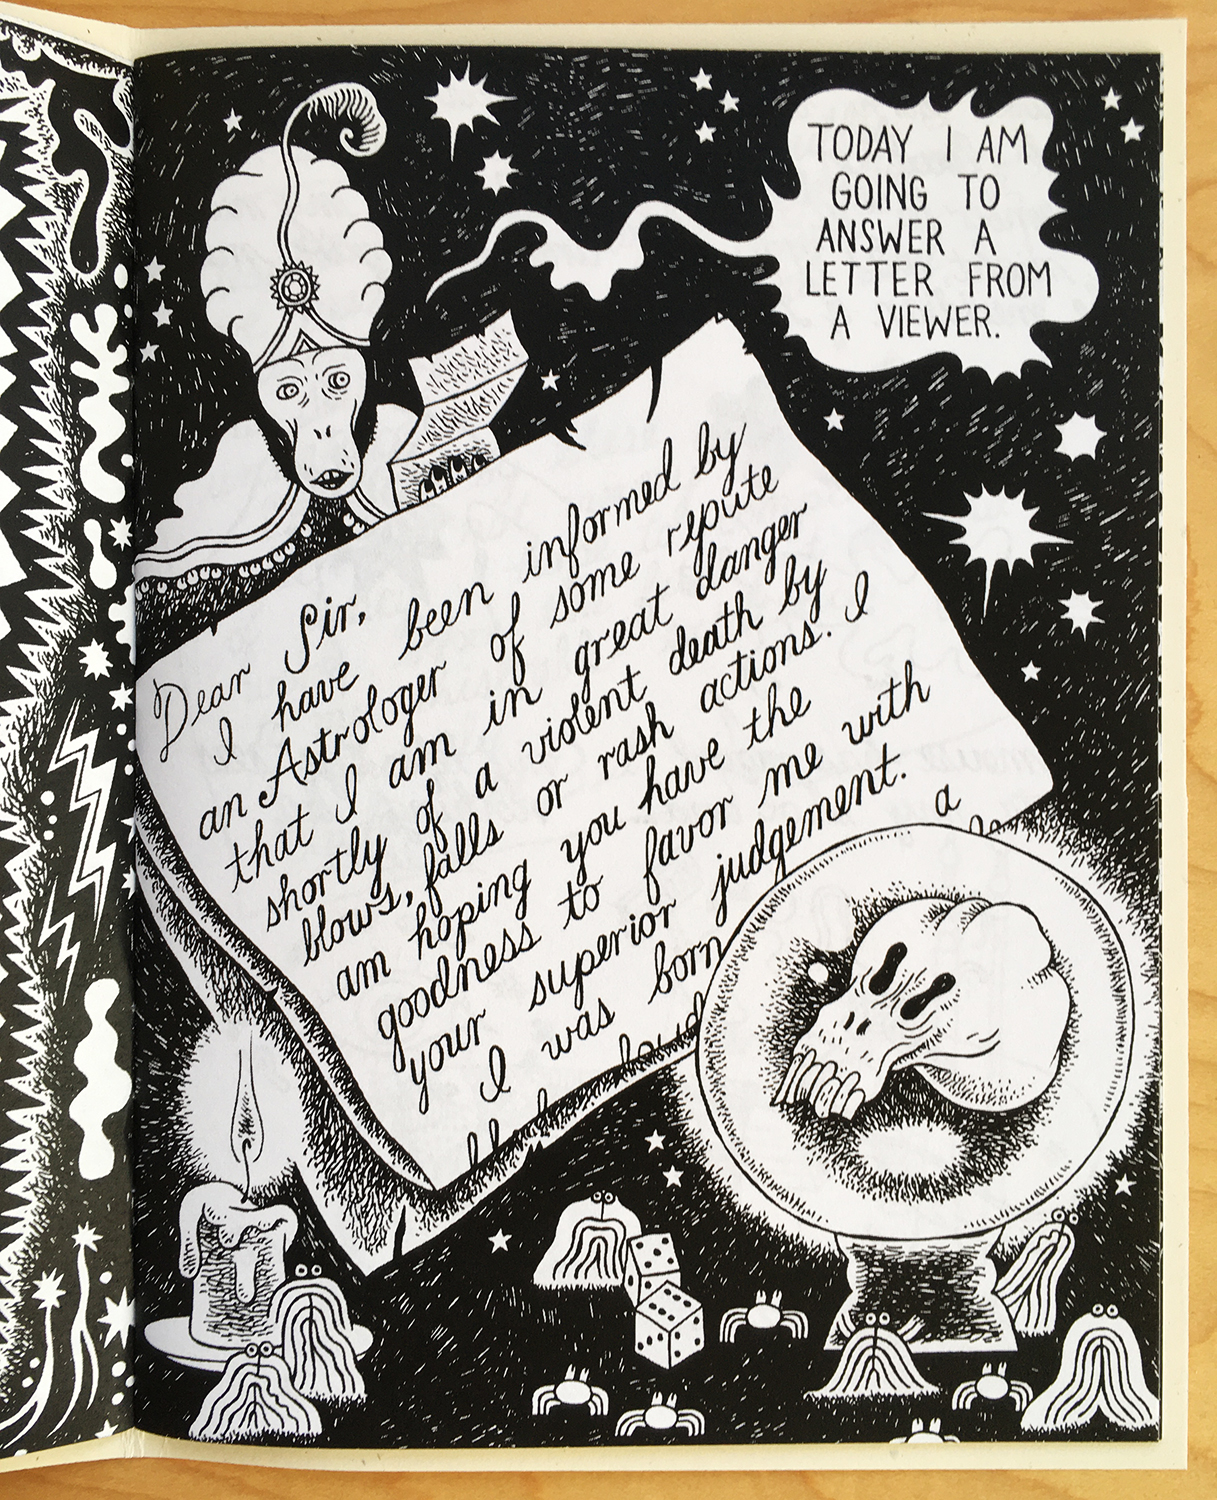 TODAY I AM
GOING TO
ANSWER A
LETTER FROM
A VIEWER.
Dear Sir,
I have been informed by
an Astrologer of some repute
that I am in great danger
shortly of a violent death by
blows, falls or rash actions. I
am hoping you have the
goodness to favor me with
your superior judgement.
I was born a